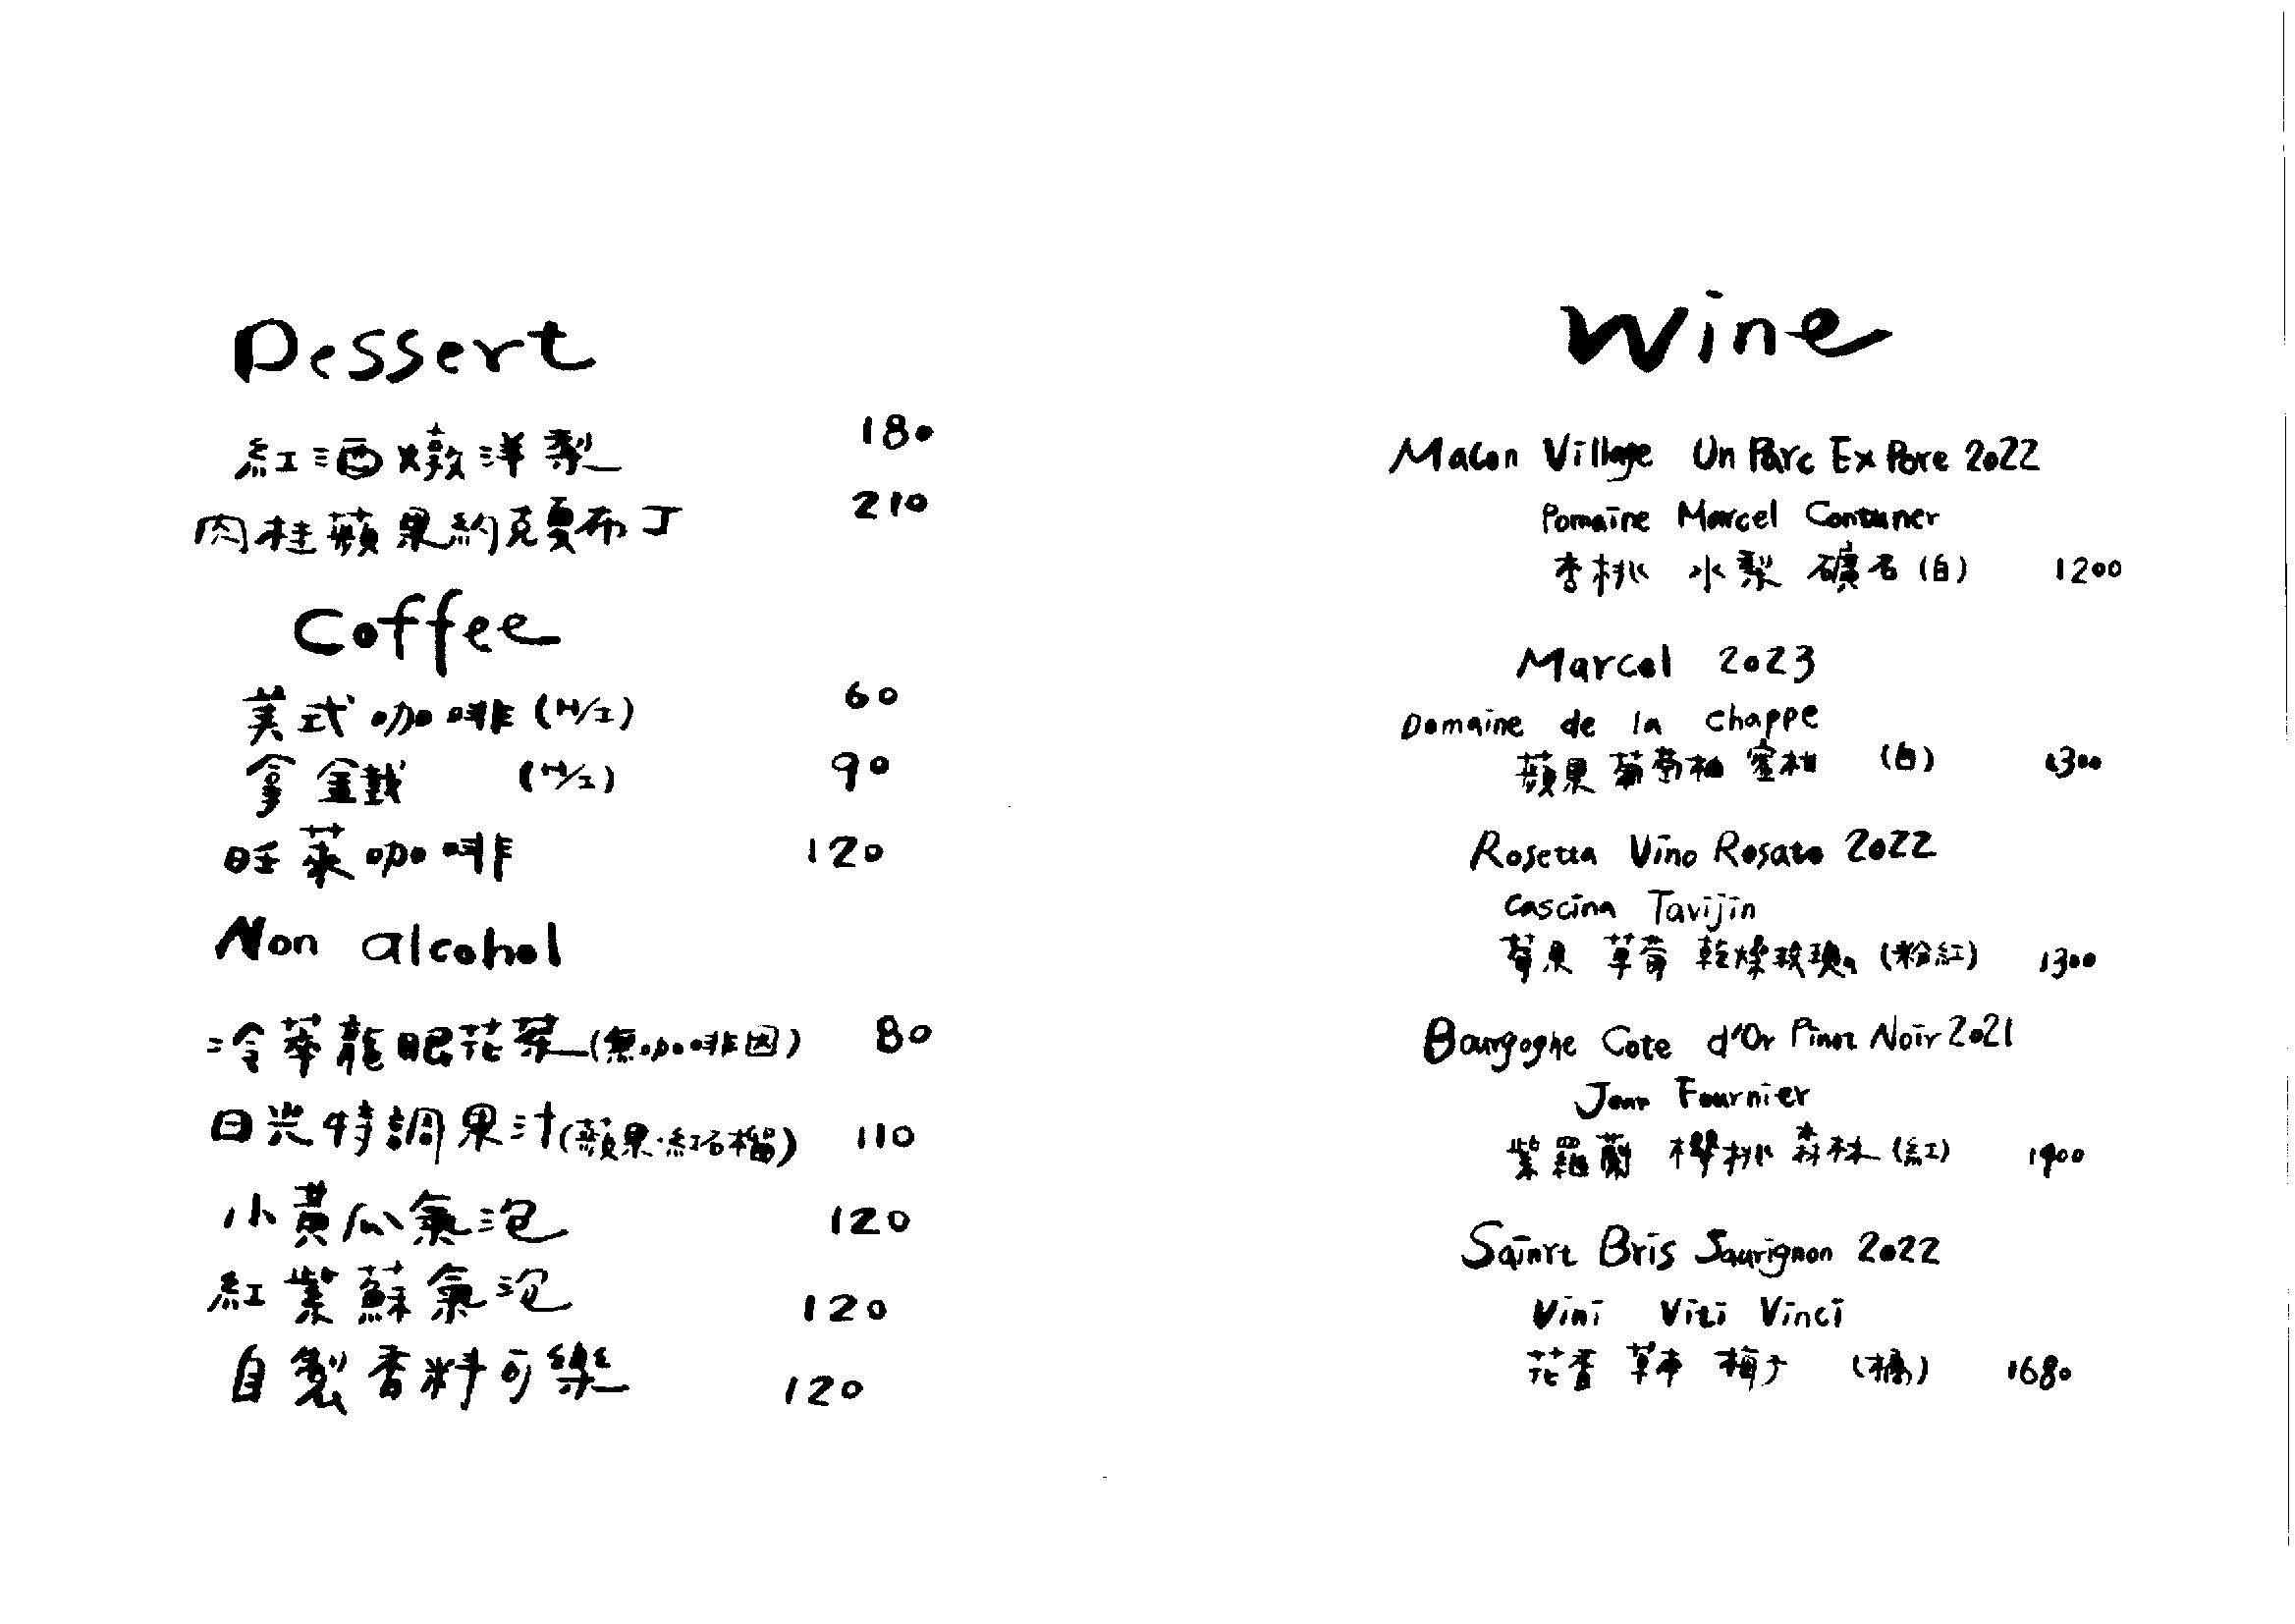 Dessert
紅酒燉洋梨 180
肉桂蘋果約克夏布丁 210
Coffee
美式咖啡(H/I) 60
拿金鐵 (H/I) 90
旺萊咖啡 120
Non alcohol
冷萃龍眼花茶(無咖啡因) 80
日光特調果汁(蘋果·紅石榴) 110
小黃瓜氣泡 120
紅紫蘇氣泡 120
自製香料可樂 120
Wine
Macon Village Un Parc Ex Pore 2022
Domaine Marcel Couturier
杏桃 水梨 礦石(白) 1200
Marcel 2023
Domaine de la Chappe
蘋果 葡萄柚 蜜柑 (白) 1300
Rosetta Vino Rosato 2022
Cascina Tavijin
莓果 草莓 乾燥玫瑰 (粉紅) 1300
Bourgoghe Cote d'Or Pinot Noir 2021
Jean Fournier
紫羅蘭 櫻桃 森林(紅) 1900
Sainrt Bris Saurignon 2022
Vini Viti Vinci
花香 草本 梅子 (橘) 1680